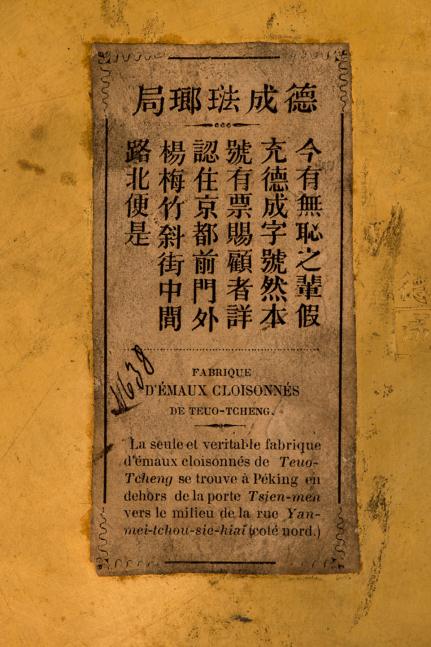 德成琺瑯局
今有無恥之輩假
充德成字號然本
號有票賜顧者詳
認住京都前門外
楊梅竹斜街中間
路北便是
FABRIQUE
D'ÉMAUX CLOISONNÉS
DE TEUO-TCHENG.
La seule et veritable fabrique
d'émaux cloisonnés de Teuo-
Tcheng se trouve à Péking en
dehors de la porte Tsien-men
vers le milieu de la rue Yan-
mei-tchou-sie-hiaï (coté nord.)